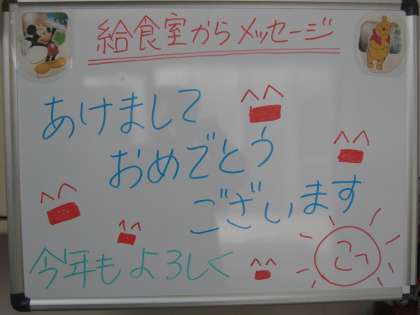 給食室からメッセージ
あけまして
おめでとう
ございます
今年もよろしく